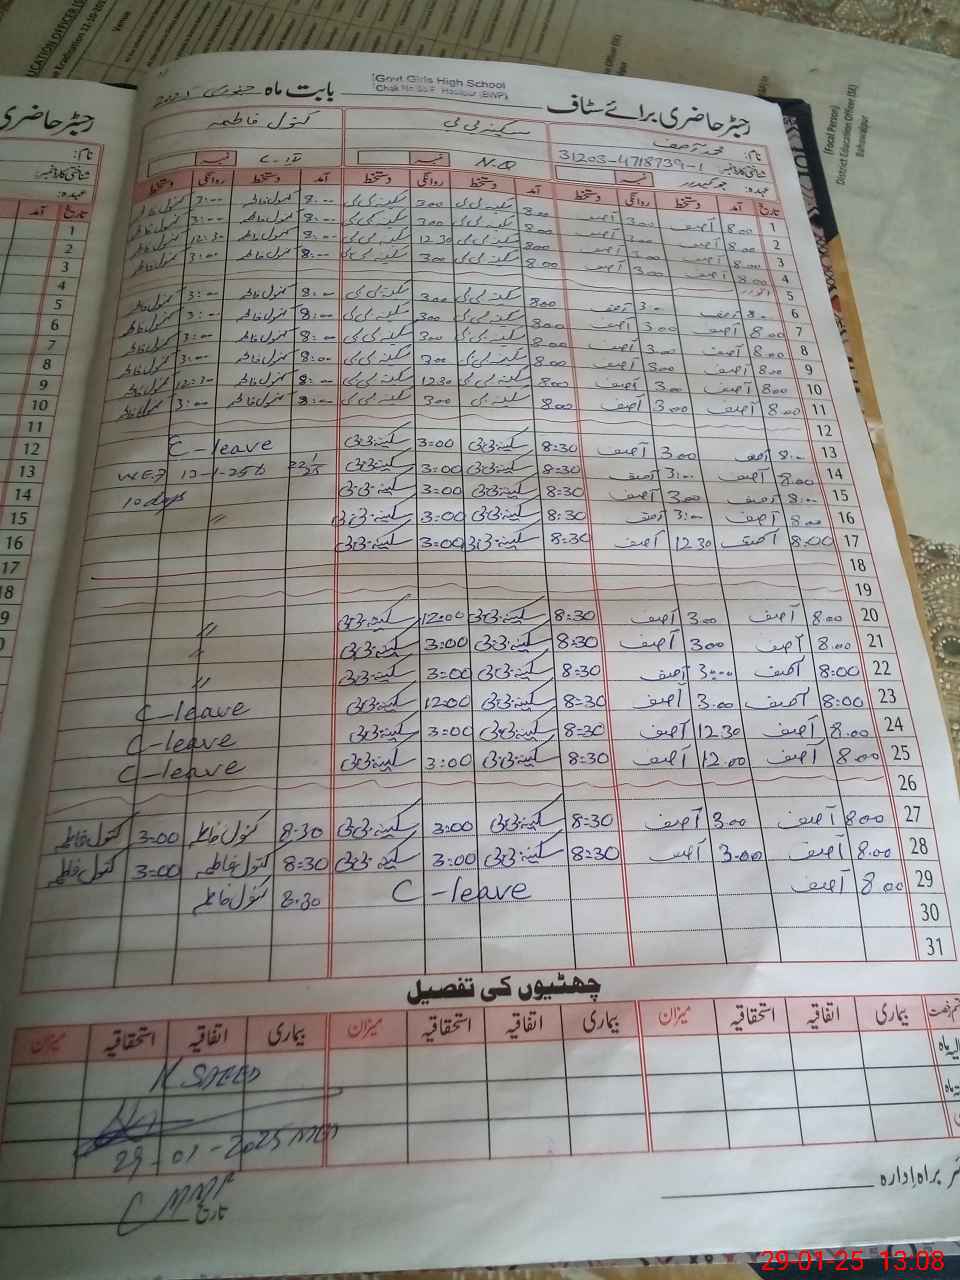 Govt Girls High School
رجسٹر حاضری برائے سٹاف
بابت ماہ جنوری
نام: محمد آصف
سکینہ بی بی
کنول فاطمہ
شناختی کارڈ نمبر: 31203-4718739-1
عہدہ: چوکیدار نمبر
N.Q نمبر
نمبر
تاریخ آمد دستخط روانگی دستخط آمد دستخط روانگی دستخط آمد دستخط روانگی دستخط
1 8.00 آصف 3.00 آصف 8.00 سکینہ بی بی 3.00 سکینہ بی بی 8:00 کنول فاطمہ 3:00 کنول فاطمہ
2 8.00 آصف 3.00 آصف 8.00 سکینہ بی بی 3.00 سکینہ بی بی 8:00 کنول فاطمہ 3:00 کنول فاطمہ
3 8.00 آصف 3.00 آصف 8.00 سکینہ بی بی 12.30 سکینہ بی بی 8:00 کنول فاطمہ 12:30 کنول فاطمہ
4 8.00 آصف 3.00 آصف 8.00 سکینہ بی بی 3.00 سکینہ بی بی 8:00 کنول فاطمہ 3:00 کنول فاطمہ
5 اتوار
6 8:00 آصف 3:00 آصف 8.00 سکینہ بی بی 3.00 سکینہ بی بی 8:00 کنول فاطمہ 3:00 کنول فاطمہ
7 8.00 آصف 3.00 آصف 8.00 سکینہ بی بی 3.00 سکینہ بی بی 8:00 کنول فاطمہ 3:00 کنول فاطمہ
8 8.00 آصف 3.00 آصف 8.00 سکینہ بی بی 3.00 سکینہ بی بی 8:00 کنول فاطمہ 3:00 کنول فاطمہ
9 8.00 آصف 3.00 آصف 8.00 سکینہ بی بی 3.00 سکینہ بی بی 8:00 کنول فاطمہ 3:00 کنول فاطمہ
10 8.00 آصف 3.00 آصف 8.00 سکینہ بی بی 12.30 سکینہ بی بی 8:00 کنول فاطمہ 12:30 کنول فاطمہ
11 8.00 آصف 3.00 آصف 8.00 سکینہ بی بی 3.00 سکینہ بی بی 8:00 کنول فاطمہ 3:00 کنول فاطمہ
12
13 8:00 آصف 3.00 آصف 8:30 سکینہ بی بی 3:00 سکینہ بی بی C-leave
14 8.00 آصف 3:00 آصف 8:30 سکینہ بی بی 3:00 سکینہ بی بی W.E.F
15 8:00 آصف 3.00 آصف 8:30 سکینہ بی بی 3:00 سکینہ بی بی 10 days
16 8.00 آصف 3:00 آصف 8:30 سکینہ بی بی 3:00 سکینہ بی بی "
17 8.00 آصف 12.30 آصف 8:30 سکینہ بی بی 3:00 سکینہ بی بی
18
19
20 8.00 آصف 3.00 آصف 8:30 سکینہ بی بی 12:00 سکینہ بی بی "
21 8.00 آصف 3.00 آصف 8:30 سکینہ بی بی 3:00 سکینہ بی بی "
22 8:00 آصف 3:00 آصف 8:30 سکینہ بی بی 3:00 سکینہ بی بی "
23 8:00 آصف 3.00 آصف 8:30 سکینہ بی بی 12:00 سکینہ بی بی C-leave
24 8.00 آصف 12.30 آصف 8:30 سکینہ بی بی 3:00 سکینہ بی بی C-leave
25 8.00 آصف 12.00 آصف 8:30 سکینہ بی بی 3:00 سکینہ بی بی C-leave
26
27 8.00 آصف 3.00 آصف 8:30 سکینہ بی بی 3:00 سکینہ بی بی 8:30 کنول فاطمہ 3:00 کنول فاطمہ
28 8.00 آصف 3.00 آصف 8:30 سکینہ بی بی 3:00 سکینہ بی بی 8:30 کنول فاطمہ 3:00 کنول فاطمہ
29 8.00 آصف C-leave 8:30 کنول فاطمہ
30
31
چھٹیوں کی تفصیل
بیماری اتفاقیہ استحقاقیہ میزان بیماری اتفاقیہ استحقاقیہ میزان بیماری اتفاقیہ استحقاقیہ میزان
29-01-2025
براہ ادارہ
تاریخ
29-01-25 13:08
District Education Officer (SE)
Bahawalpur
(Focal Person)